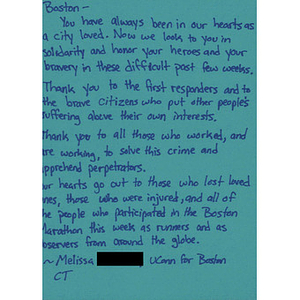 Boston –
You have always been in our hearts as
a city loved. Now we look to you in
solidarity and honor your heroes and your
bravery in these difficult past few weeks.
Thank you to the first responders and to
the brave citizens who put other people's
suffering above their own interests.
Thank you to all those who worked, and
are working, to solve this crime and
apprehend perpetrators.
Our hearts go out to those who lost loved
ones, those who were injured, and all of
the people who participated in the Boston
Marathon this week as runners and as
observers from around the globe.
~ Melissa UConn for Boston
CT